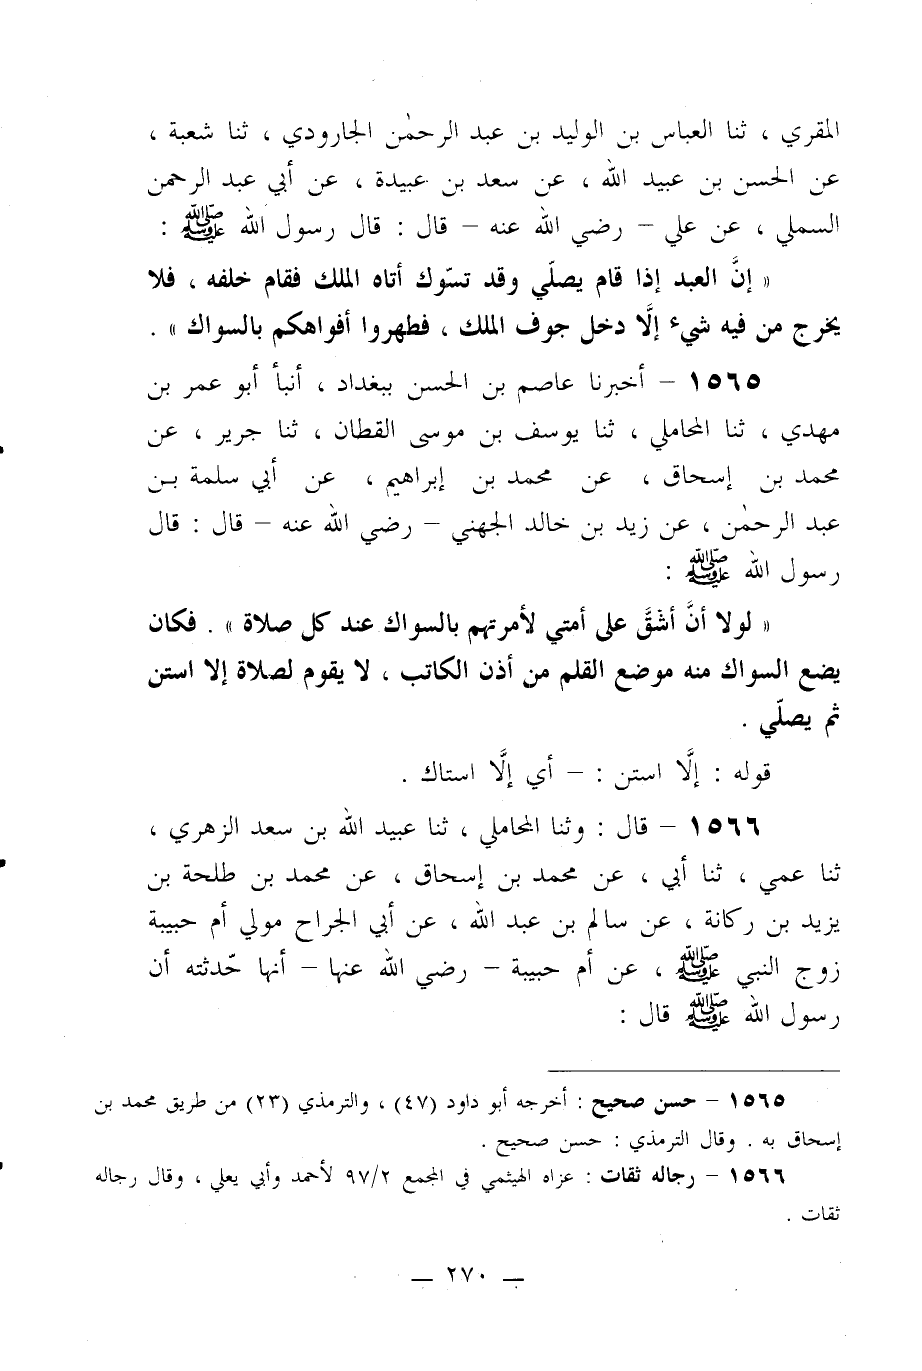 المقري ، ثنا العباس بن الوليد بن عبد الرحمٰن الجارودي ، ثنا شعبة ،
عن الحسن بن عبيد الله ، عن سعد بن عبيدة ، عن أبي عبد الرحمن
السملي ، عن علي – رضي الله عنه – قال : قال رسول الله ﷺ :
« إنَّ العبد إذا قام يصلّي وقد تسوّك أتاه الملك فقام خلفه ، فلا
يخرج من فيه شيء إلَّا دخل جوف الملك ، فطهروا أفواهكم بالسواك » .
١٥٦٥ – أخبرنا عاصم بن الحسن ببغداد ، أنبأ أبو عمر بن
مهدي ، ثنا المحاملي ، ثنا يوسف بن موسى القطان ، ثنا جرير ، عن
محمد بن إسحاق ، عن محمد بن إبراهيم ، عن أبي سلمة بن
عبد الرحمٰن ، عن زيد بن خالد الجهني – رضي الله عنه – قال : قال
رسول الله ﷺ :
« لولا أنَّ أشقَّ على أمتي لأمرتهم بالسواك عند كل صلاة » . فكان
يضع السواك منه موضع القلم من أذن الكاتب ، لا يقوم لصلاة إلا استن
ثم يصلّي .
قوله : إلَّا استن : – أي إلَّا استاك .
١٥٦٦ – قال : وثنا المحاملي ، ثنا عبيد الله بن سعد الزهري ،
ثنا عمي ، ثنا أبي ، عن محمد بن إسحاق ، عن محمد بن طلحة بن
يزيد بن ركانة ، عن سالم بن عبد الله ، عن أبي الجراح مولي أم حبيبة
زوج النبي ﷺ ، عن أم حبيبة – رضي الله عنها – أنها حّدثته أن
رسول الله ﷺ قال :
١٥٦٥ – حسن صحيح : أخرجه أبو داود (٤٧) ، والترمذي (٢٣) من طريق محمد بن
إسحاق به . وقال الترمذي : حسن صحيح .
١٥٦٦ – رجاله ثقات : عزاه الهيثمي في المجمع ٩٧/٢ لأحمد وأبي يعلي ، وقال رجاله
ثقات .
— ٢٧٠ —